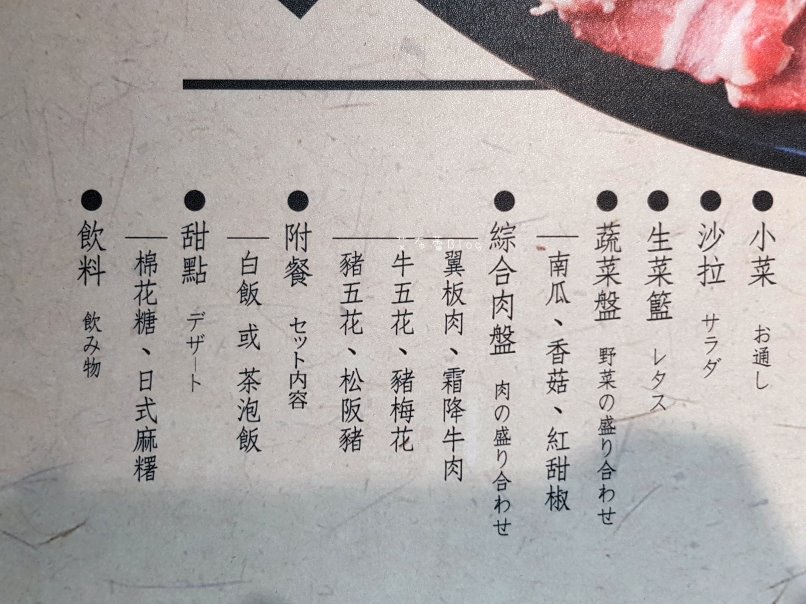 ● 小菜 お通し
● 沙拉 サラダ
● 生菜籃 レタス
● 蔬菜盤 野菜の盛り合わせ
南瓜、香菇、紅甜椒
● 綜合肉盤 肉の盛り合わせ
翼板肉、霜降牛肉
牛五花、豬梅花
豬五花、松阪豬
● 附餐 セット内容
白飯 或 茶泡飯
● 甜點 デザート
棉花糖、日式麻糬
● 飲料 飲み物